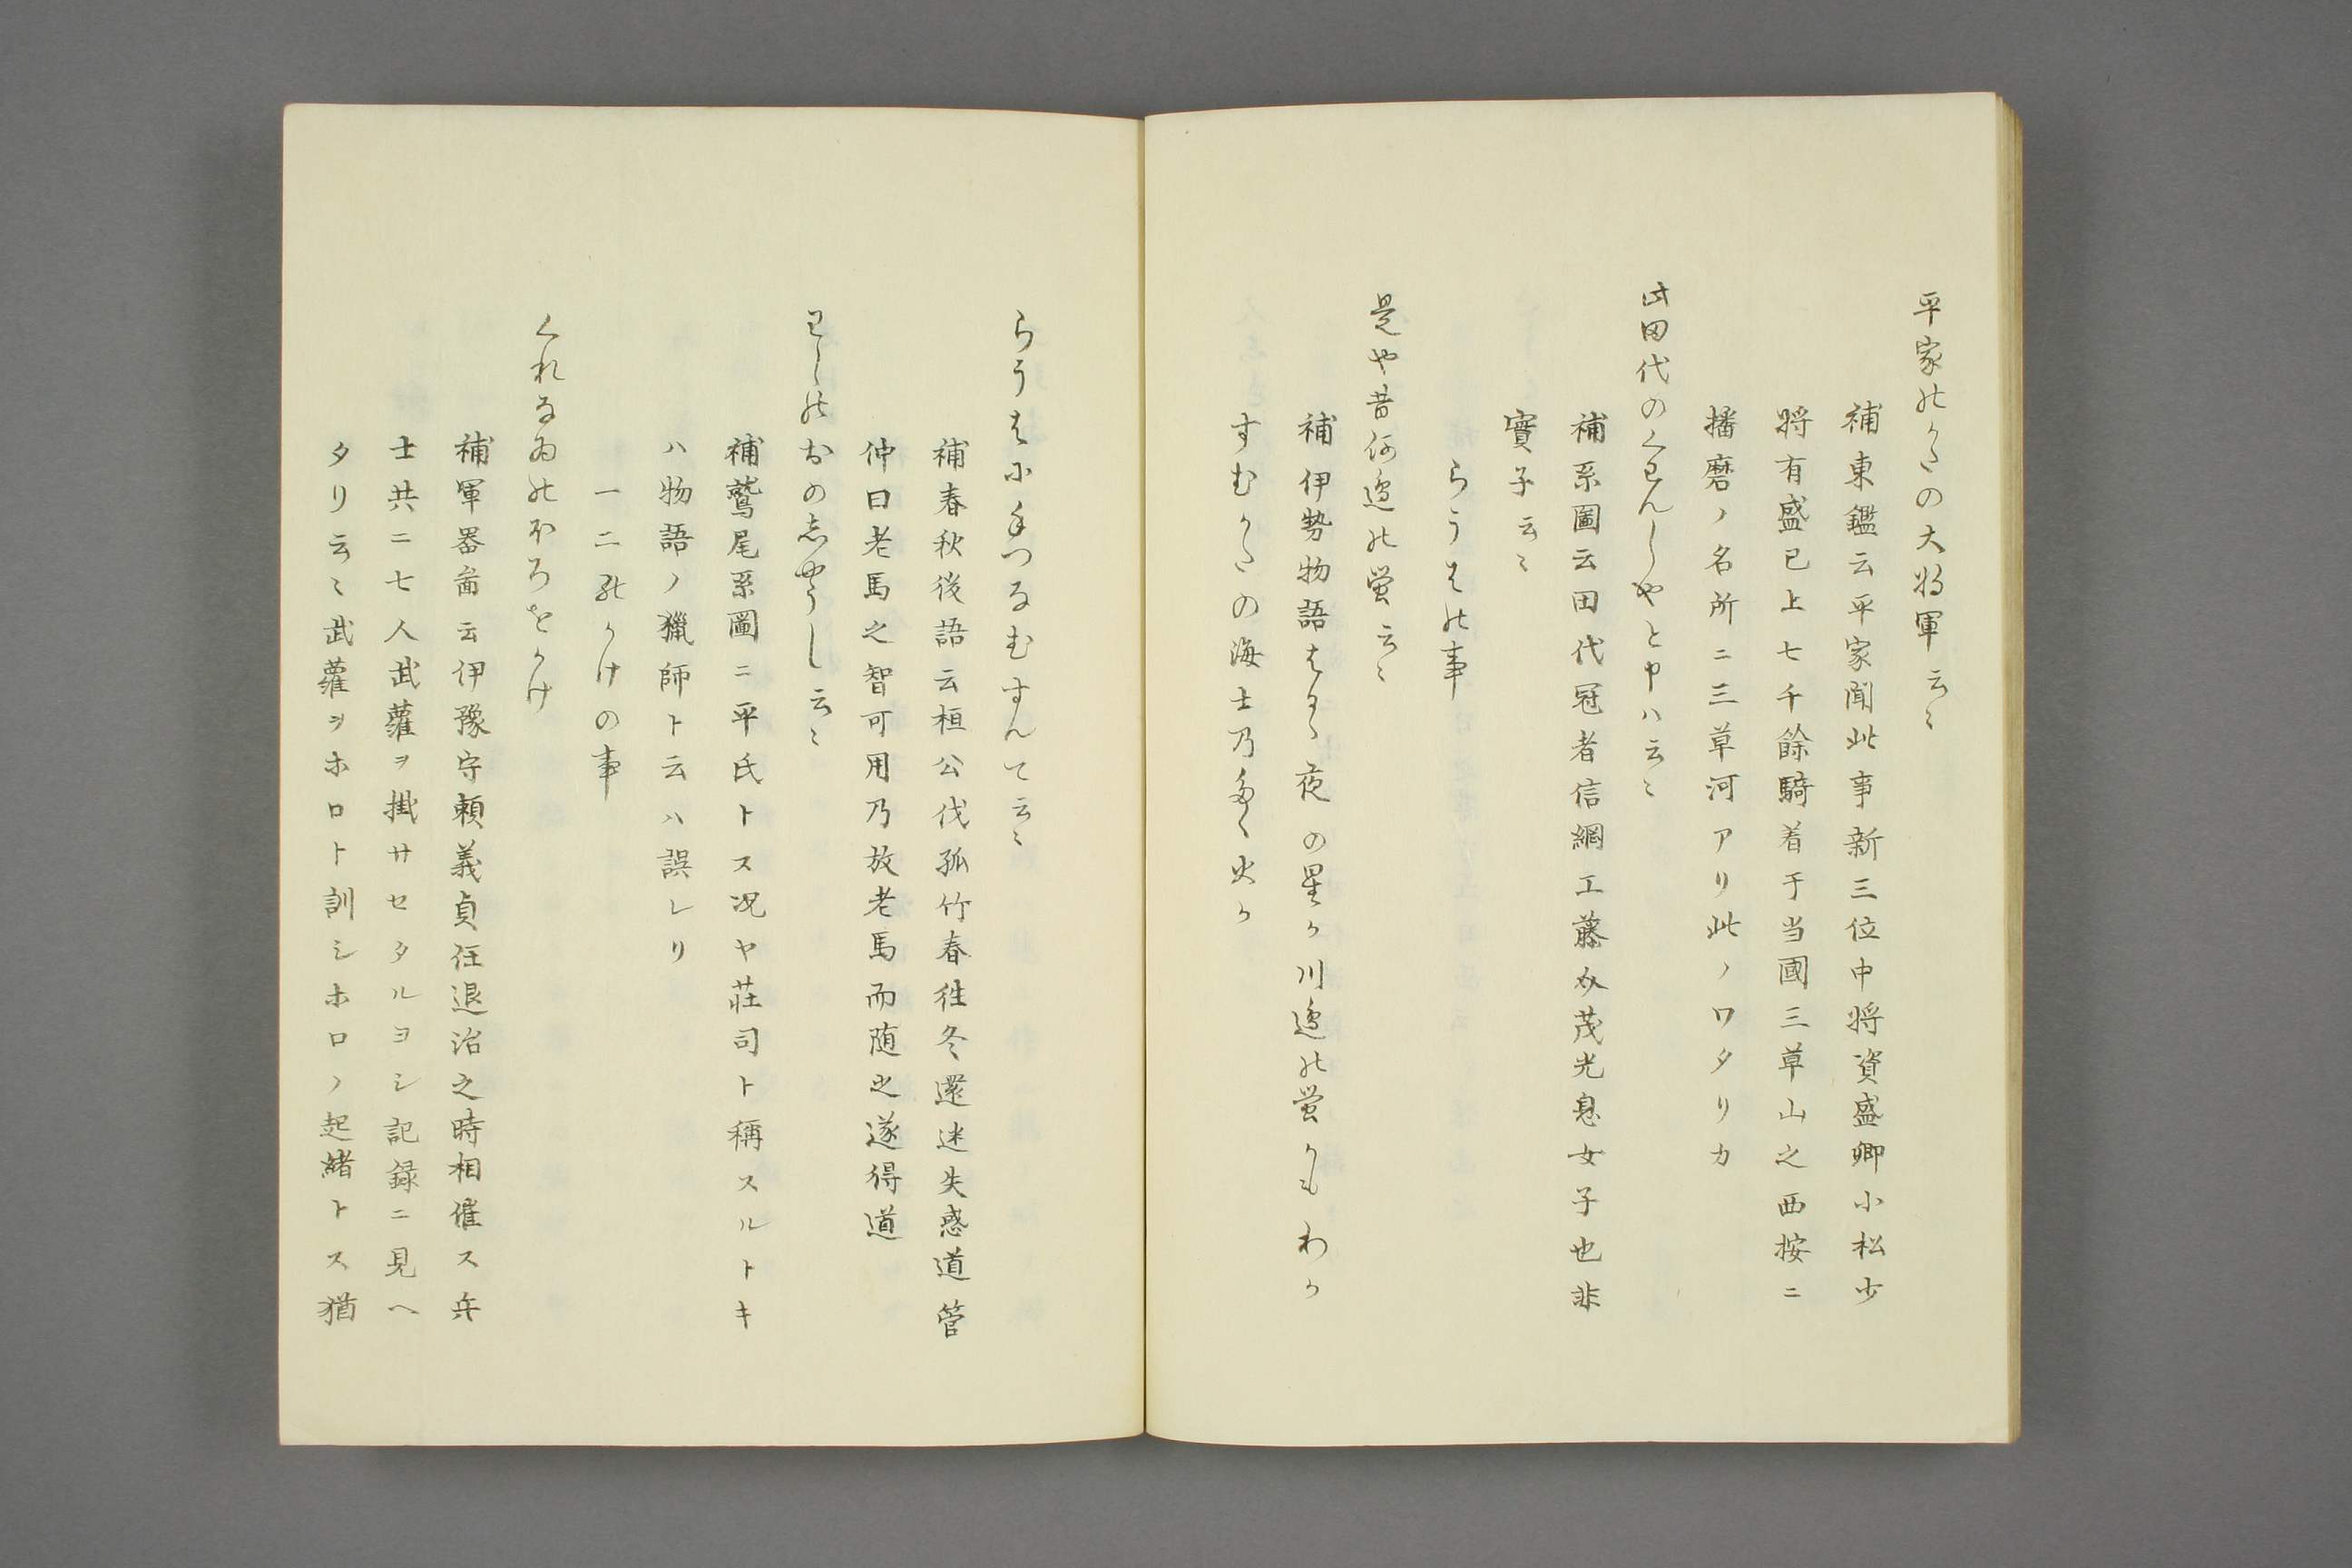 平家のかたの大将軍云〻
補東鑑云平家聞此事新三位中将資盛卿小松少
将有盛已上七千餘騎着于当國三草山之西按ニ
播磨ノ名所ニ三草河アリ此ノワタリカ
此田代のくわんしやと申ハ云〻
補系圖云田代冠者信綱工藤介茂光息女子也非
實子云〻
らうはの事
是や昔何邊の螢云〻
補伊勢物語はるゝ夜の星か川邊の螢かもわか
すむかたの海士乃多く火か
らうはに手つなむすんて云〻
補春秋後語云桓公伐孤竹春往冬還迷失惑道管
仲曰老馬之智可用乃放老馬而随之遂得道
わしのおの志やうし云〻
補鷲尾系圖ニ平氏トス况ヤ荘司ト稱スルトキ
ハ物語ノ獵師ト云ハ誤レリ
一二のかけの事
くれなゐのほろをかけ
補軍器啚云伊豫守頼義貞任退治之時相催ス兵
士共ニ七人武蘿ヲ掛サセタルヨシ記録ニ見ヘ
タリ云〻武蘿ヲホロト訓シホロノ起緒トス猶